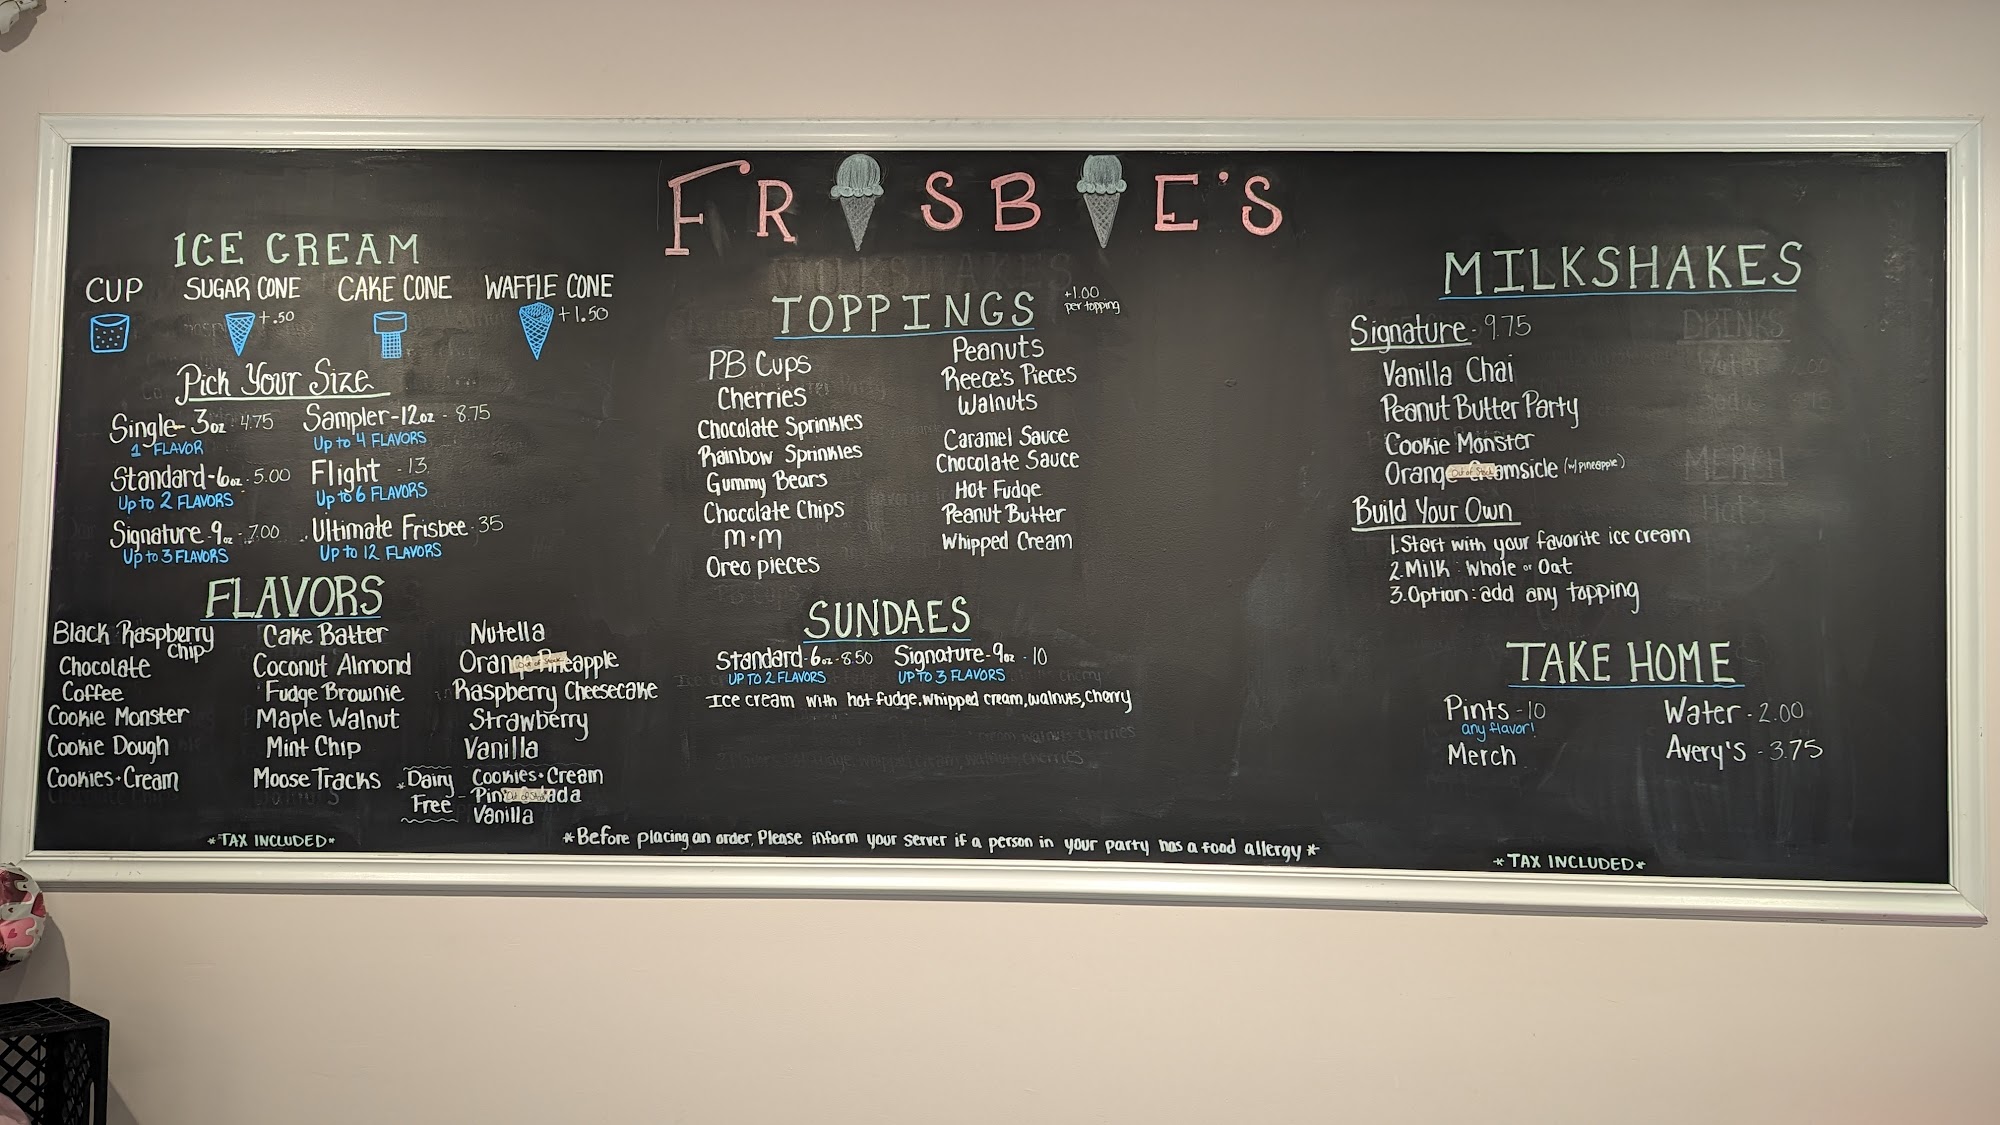 FRISBIE'S
ICE CREAM
CUP SUGAR CONE CAKE CONE WAFFLE CONE
+.50 +1.50
Pick Your Size
Single - 3oz - 4.75
1 FLAVOR
Standard - 6oz - 5.00
Up to 2 FLAVORS
Signature - 9oz - 7.00
Up to 3 FLAVORS
Sampler - 12oz - 8.75
Up to 4 FLAVORS
Flight - 13
Up to 6 FLAVORS
Ultimate Frisbee - 35
Up to 12 FLAVORS
FLAVORS
Black Raspberry
Chip
Chocolate
Coffee
Cookie Monster
Cookie Dough
Cookies + Cream
Cake Batter
Coconut Almond
Fudge Brownie
Maple Walnut
Mint Chip
Moose Tracks
Nutella
Orange Pineapple
Raspberry Cheesecake
Strawberry
Vanilla
*Dairy
Free -
Cookies + Cream
Pin Out of Stock ada
Vanilla
*TAX INCLUDED*
TOPPINGS
+1.00
per topping
PB Cups
Cherries
Chocolate Sprinkles
Rainbow Sprinkles
Gummy Bears
Chocolate Chips
M+M
Oreo pieces
Peanuts
Reece's Pieces
Walnuts
Caramel Sauce
Chocolate Sauce
Hot Fudge
Peanut Butter
Whipped Cream
SUNDAES
Standard - 6oz - 8.50
UP TO 2 FLAVORS
Signature - 9oz - 10
UP TO 3 FLAVORS
Ice cream with hot fudge, whipped cream, walnuts, cherry
*Before placing an order, Please inform your server if a person in your party has a food allergy*
MILKSHAKES
Signature - 9.75
Vanilla Chai
Peanut Butter Party
Cookie Monster
Orange Out of Stock Creamsicle (w/ pineapple)
Build Your Own
1. Start with your favorite ice cream
2. Milk: Whole or Oat
3. Option: add any topping
TAKE HOME
Pints - 10
any flavor!
Merch
Water - 2.00
Avery's - 3.75
*TAX INCLUDED*